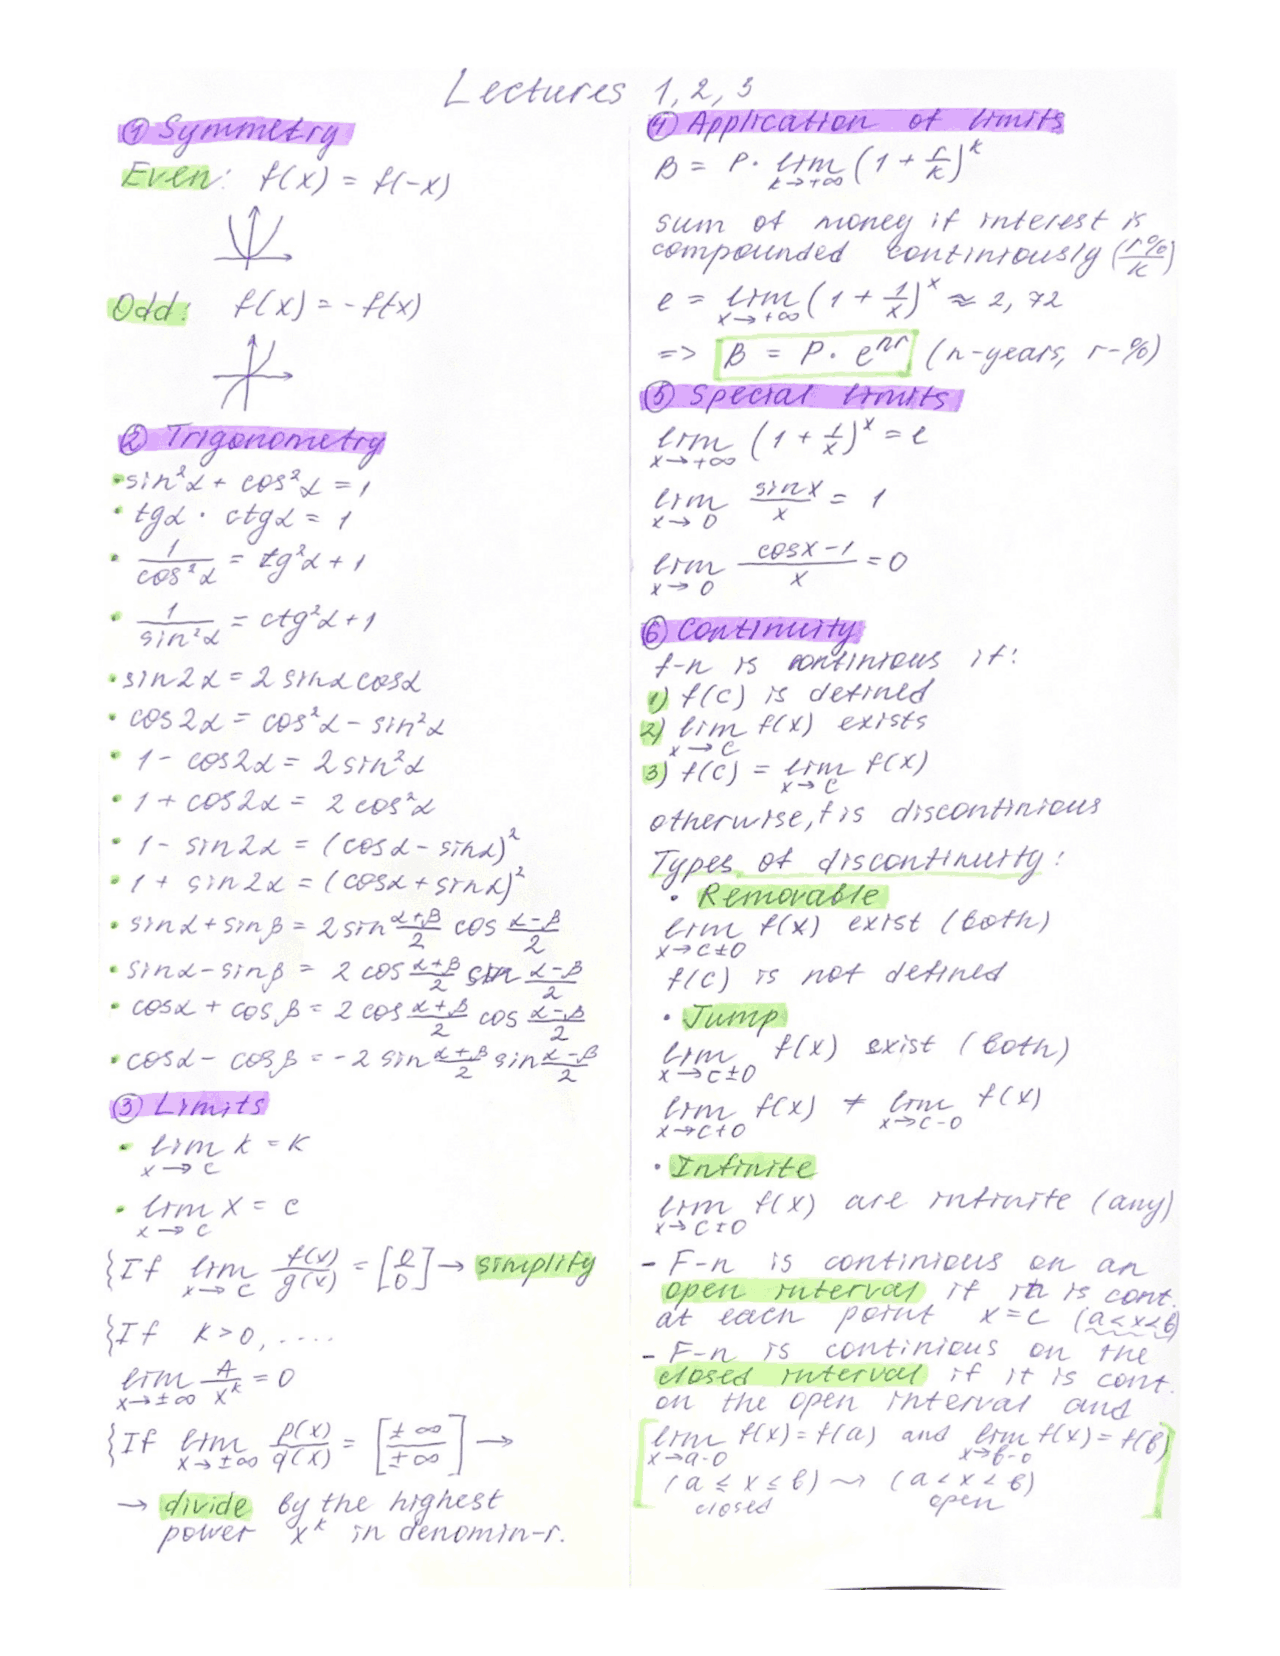 Lectures 1, 2, 3
① Symmetry
Even: f(x) = f(-x)
Odd: f(x) = -f(x)
② Trigonometry
• sin²α + cos²α = 1
• tgα · ctgα = 1
• 1/cos²α = tg²α + 1
• 1/sin²α = ctg²α + 1
• sin2α = 2 sinα cosα
• cos2α = cos²α - sin²α
• 1 - cos2α = 2 sin²α
• 1 + cos2α = 2 cos²α
• 1 - sin2α = (cosα - sinα)²
• 1 + sin2α = (cosα + sinα)²
• sinα + sinβ = 2 sin (α+β)/2 cos (α-β)/2
• sinα - sinβ = 2 cos (α+β)/2 sin (α-β)/2
• cosα + cosβ = 2 cos (α+β)/2 cos (α-β)/2
• cosα - cosβ = -2 sin (α+β)/2 sin (α-β)/2
③ Limits
• lim k = k
x→c
• lim x = c
x→c
{If lim f(x)/g(x) = [0/0] → simplify
x→c
{If k>0, ....
lim A/x^k = 0
x→±∞
{If lim p(x)/q(x) = [±∞/±∞] →
x→±∞
→ divide by the highest
power x^k in denomin-r.
④ Application of limits
B = P · lim (1 + r/k)^k
k→+∞
sum of money if interest is
compounded continiously (r%/k)
e = lim (1 + 1/x)^x ≈ 2,72
x→+∞
=> B = P · e^nr (n-years, r-%)
⑤ Special limits
lim (1 + 1/x)^x = e
x→+∞
lim sinx/x = 1
x→0
lim (cosx-1)/x = 0
x→0
⑥ Continuity
f-n is continious if:
1) f(c) is defined
2) lim f(x) exists
x→c
3) f(c) = lim f(x)
x→c
otherwise, f is discontinious
Types of discontinuity:
• Removable
lim f(x) exist (both)
x→c±0
f(c) is not defined
• Jump
lim f(x) exist (both)
x→c±0
lim f(x) ≠ lim f(x)
x→c+0 x→c-0
• Infinite
lim f(x) are infinite (any)
x→c±0
- F-n is continious on an
open interval if it is cont.
at each point x=c (a<x<b)
- F-n is continious on the
closed interval if it is cont.
on the open interval and
lim f(x) = f(a) and lim f(x) = f(b)
x→a-0 x→b-0
(a ≤ x ≤ b) ⇝ (a < x < b)
closed open